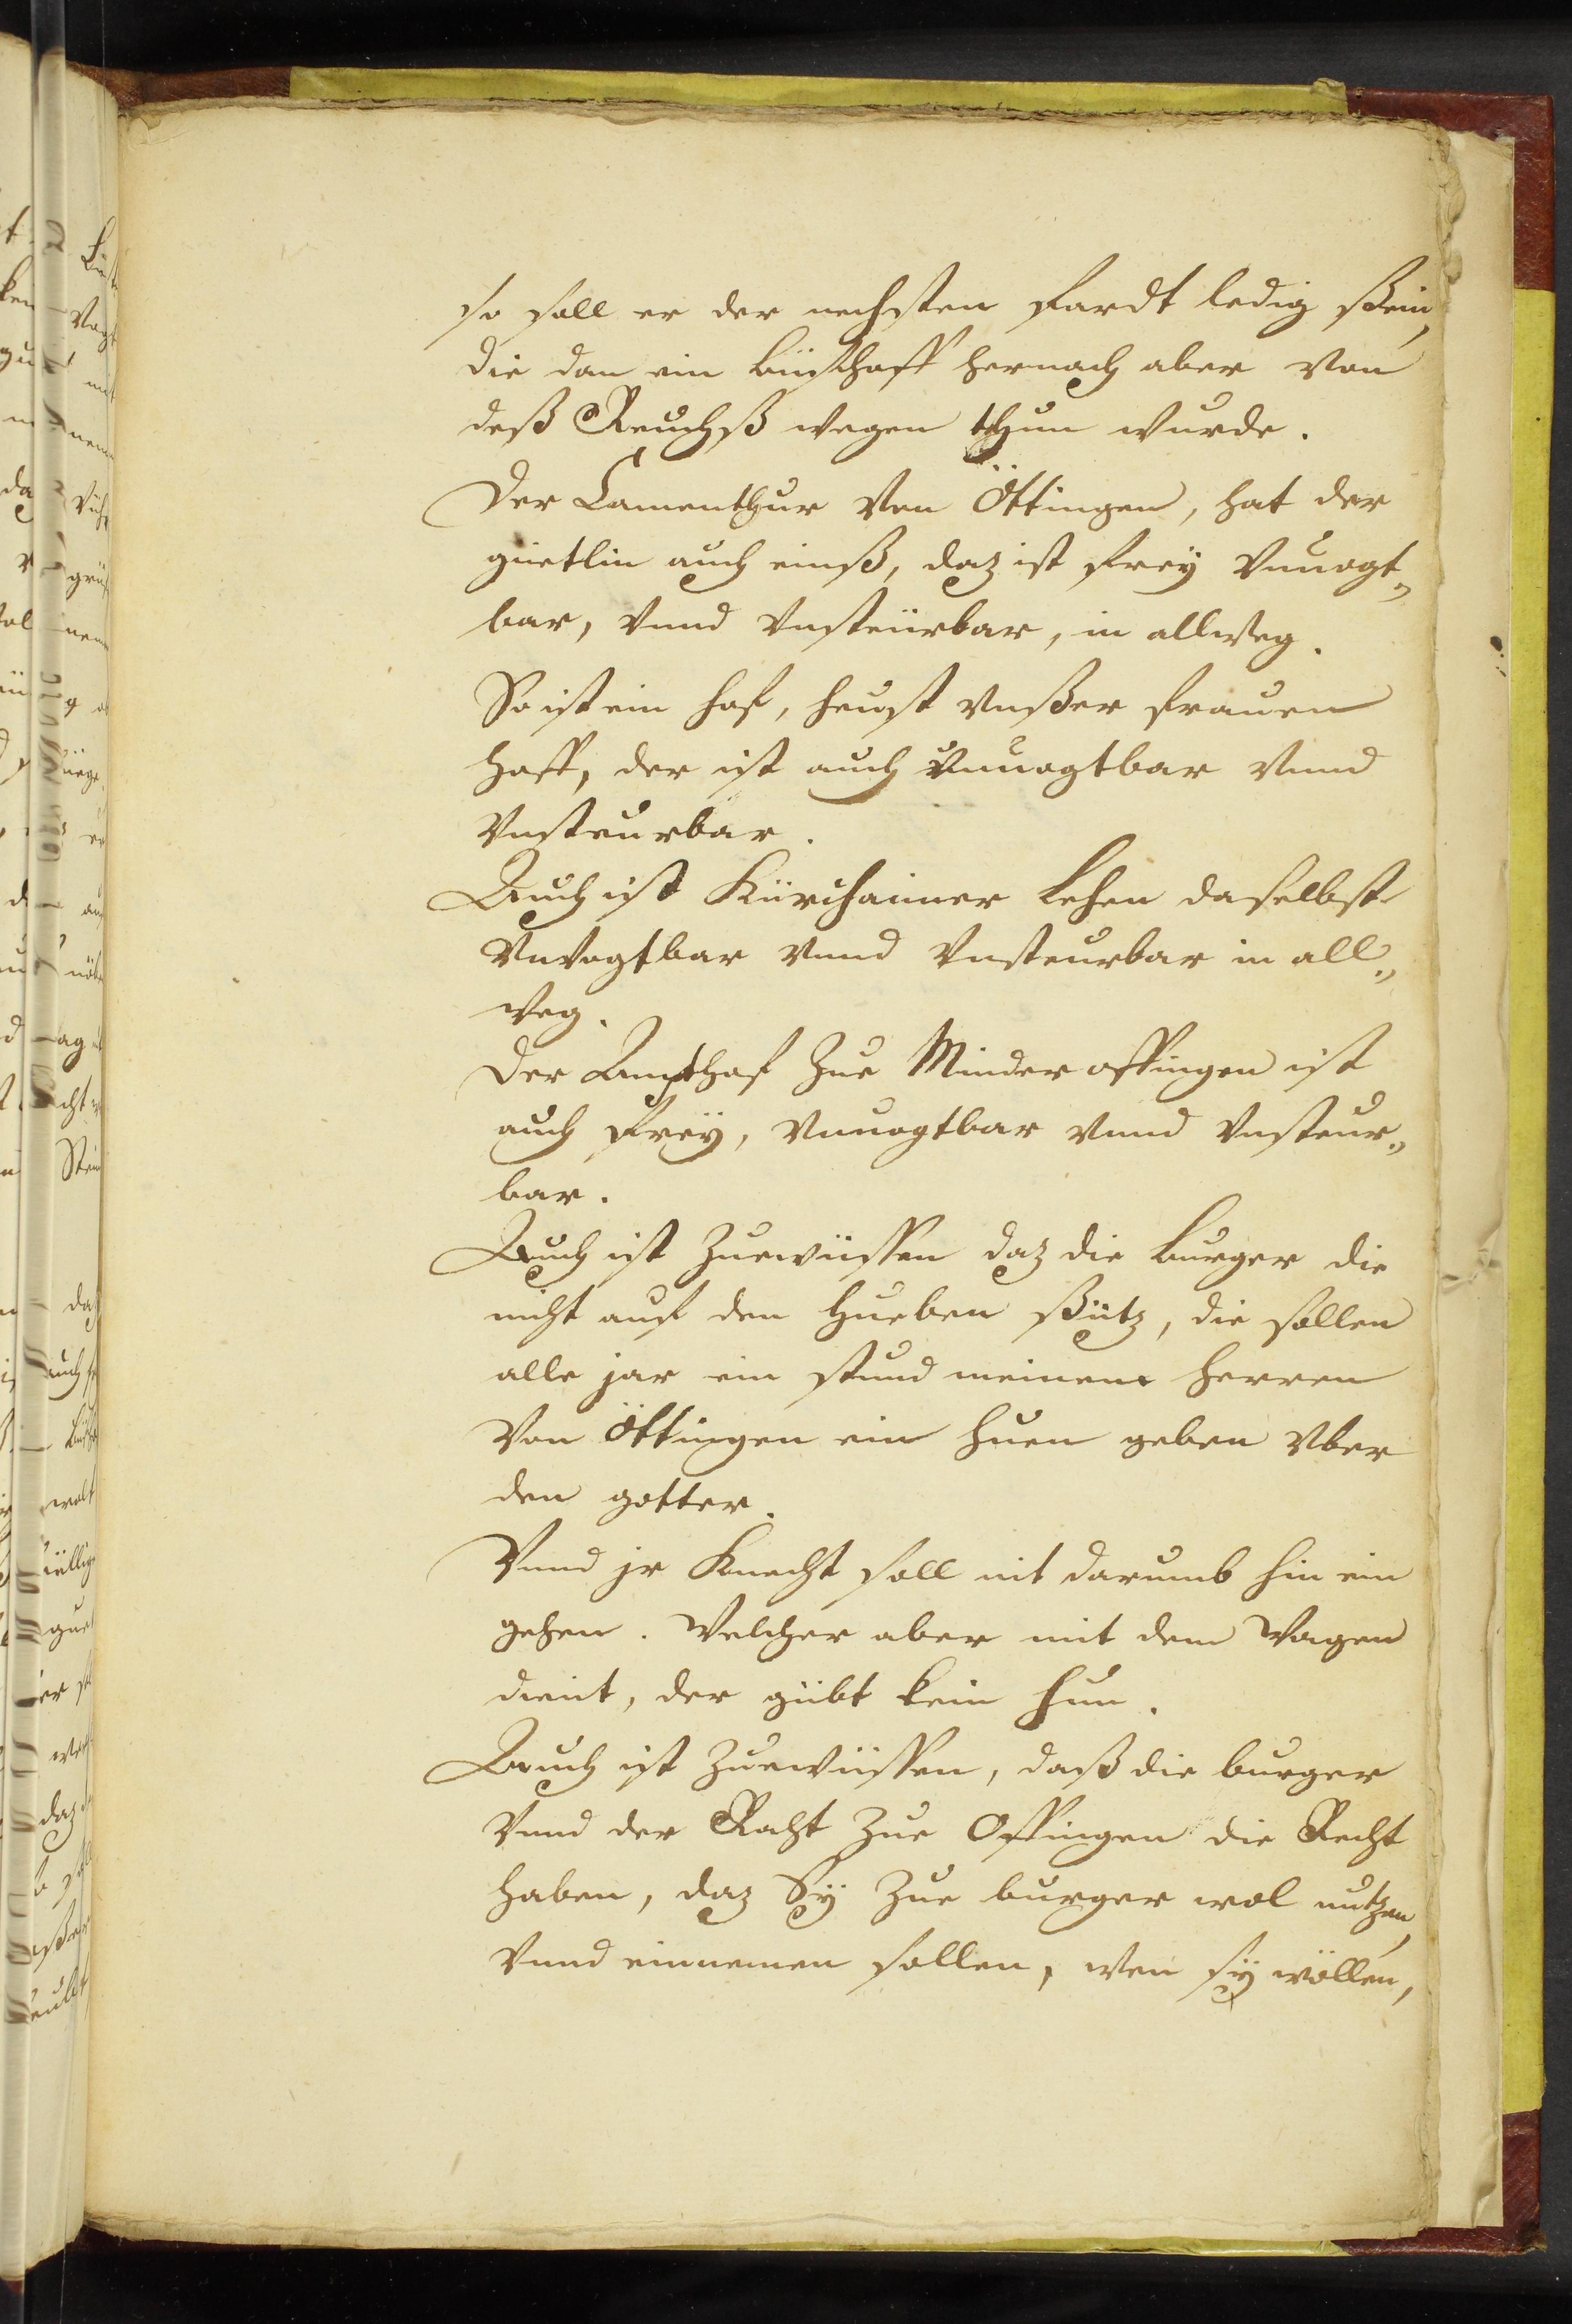 so soll er der nechsten Fardt ledig ßein,
die dan ein Büschoff hernach aber von
deß Reuchß wegen thun wurde.
Der Camenthur Von Öttingen, hat der
güetlin auch einß, daz ist Frey Vnuogt„
bar, Vnnd Vnsteürbar, in allweg.
So ist ein hof, heust Vnßer Frauen
Hoff, der ist auch Vnuogtbar Vnnd
Vnsteurbar.
Auch ist Kürchaimer Lehen daselbst
Vnvogtbar Vnnd Vnsteurbar in all„
weg.
Der Ampthof Zue Minderoffingen ist
auch Frey, Vnuogtbar Vnnd Vnsteur„
bar.
Auch ist Zuewüssen daz die Burger die
nicht auf den Hueben ßütz, die sollen
alle jar ein stund meinem Herren
Von Öttingen ein Huen geben Vber
den gotter.
Vnnd jr Knecht soll nit darumb hin ein
gehen. Welcher aber mit dem Wagen
dient, der gübt kein Hun.
Auch ist Zuewüssen, daß die burger
Vnnd der Raht Zue Offingen die Recht
haben, daz Sÿ Zue burger wol nutzen,
Vnnd einnemen sollen, wen sÿ wöllen,